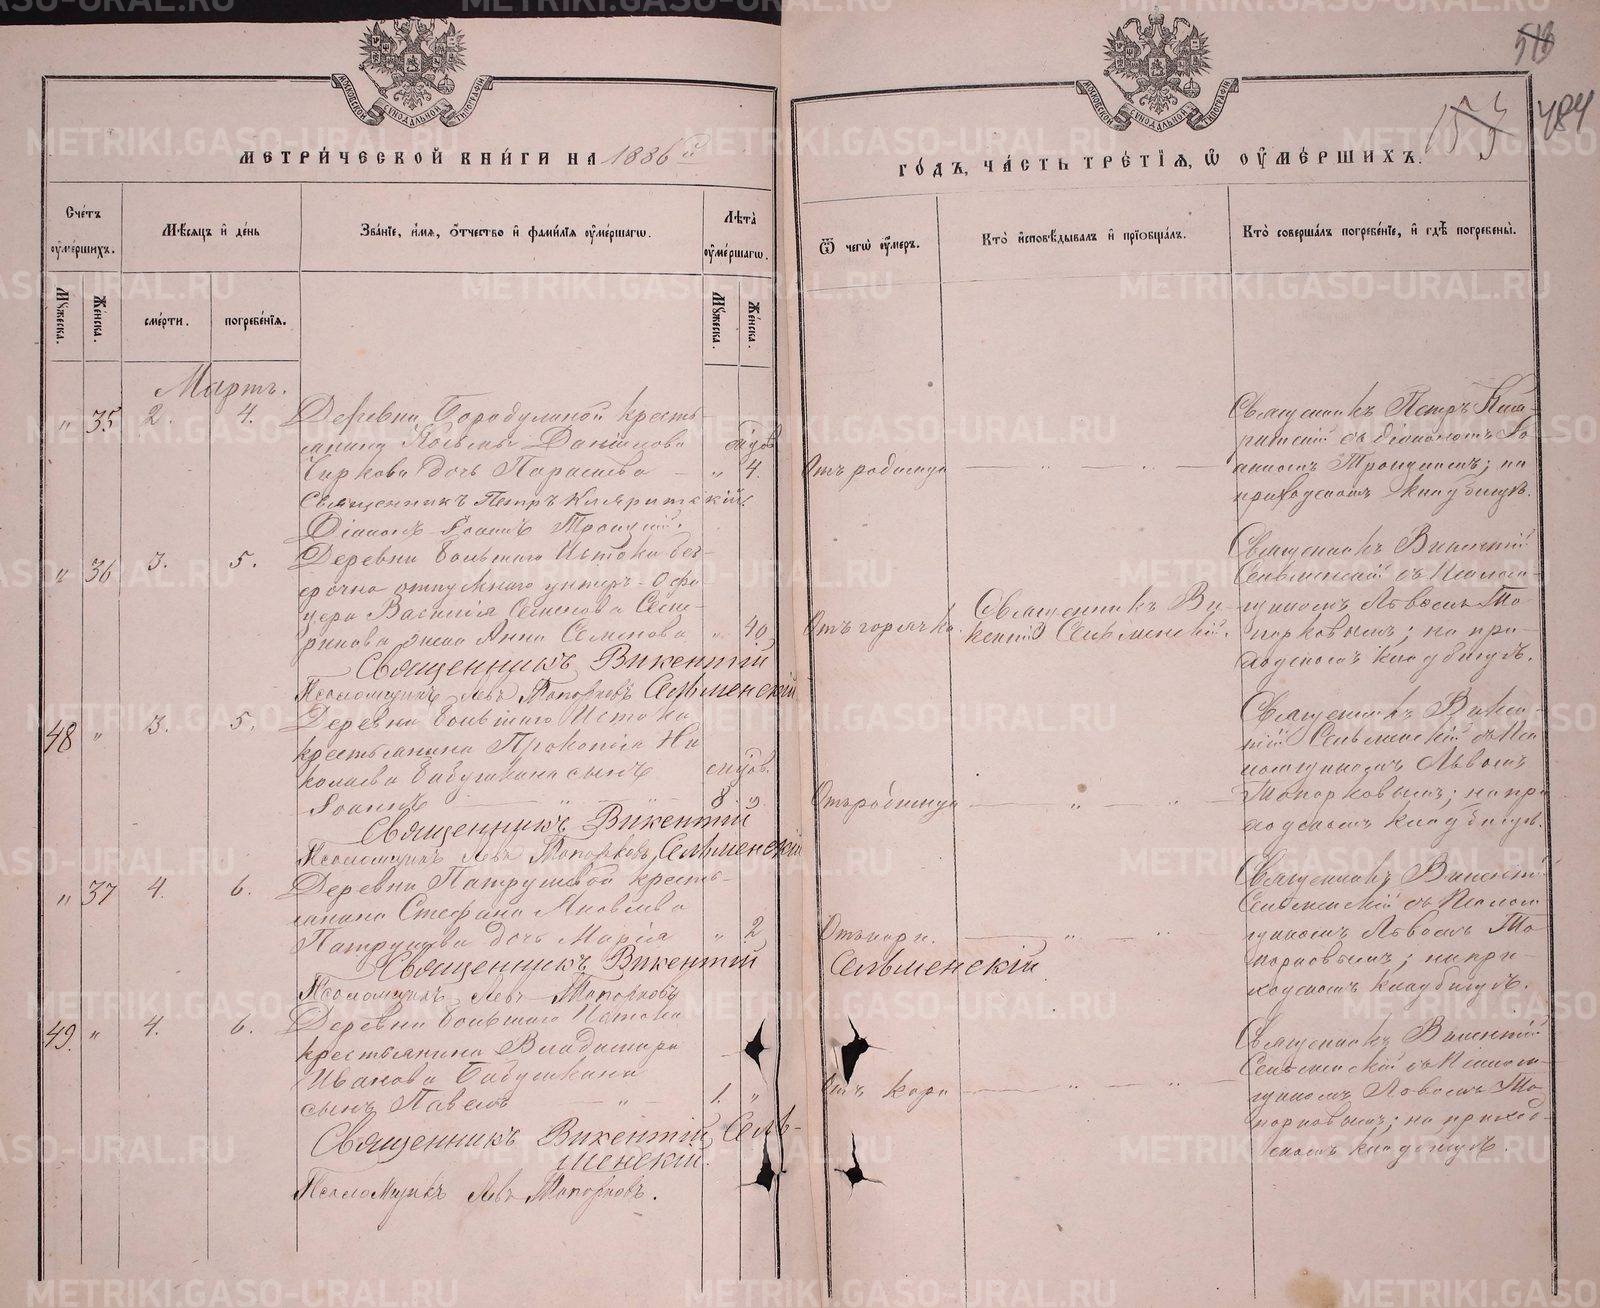 МЕТРИ́ЧЕСКОЙ КНИ́ГИ НА 1886 й
ГО́ДЪ, ЧА́СТЬ ТРЕ́ТІѦ, Ѽ ОУ҆МЕ́РШИХЪ.
484
Сче́тъ оу҆ме́ршихъ.
Мꙋ́жеска.
Же́нска.
Мѣ́сяцъ и҆ де́нь
сме́рти.
погребе́нїѧ.
Зва́нїе, и҆́мѧ, о҆́тчество и҆ фами́лїѧ оу҆ме́ршагѡ.
Лѣ́та оу҆ме́ршагѡ.
Мꙋ́жеска.
Же́нска.
Ѿ чегѡ̀ оу҆́меръ.
Кто̀ и҆сповѣ́дывалъ и҆ прїѡбща́лъ.
Кто̀ соверша́лъ погребе́нїе, и҆ гдѣ̀ погребены̀.
Мартъ.
" 35 2. 4.
Деревни Бородулиной кресть-
янина Козьмы Данилова
Чиркова дочь Парасева " 4.
Священникъ Петръ
Діаконъ Іоаннъ Троицкій.
Отъ родимца
Священникъ Петръ
съ діакономъ Іо-
анномъ Троицкимъ; на
приходскомъ кладбищѣ.
" 36 3. 5.
Деревни Большаго Истока без-
срочно отпускнаго унтеръ-офи-
цера Василія Семенова
жена Анна Семенова " 40
Священникъ Викентій
Псаломщикъ Левъ Топорковъ Сельменскій
Отъ горячки.
Священникъ Ви-
кентій Сельменскій.
Священникъ Викентій
Сельменскій съ Псалом-
щикомъ Львомъ То-
порковымъ; на при-
ходскомъ кладбищѣ.
48 " 3. 5.
Деревни Большаго Истока
крестьянина Прокопія Ни-
колаева Бабушкина сынъ
Іоаннъ 8 "
Священникъ Викентій
Псаломщикъ Левъ Топорковъ Сельменскій
Отъ родимца
Священникъ Викен-
тій Сельменскій съ Пса-
ломщикомъ Львомъ
Топорковымъ; на при-
ходскомъ кладбищѣ.
" 37 4. 6.
Деревни Патрушевой кресть-
янина Стефана Яковлева
Патрушева дочь Марія " 2
Священникъ Викентій
Сельменскій
Псаломщикъ Левъ Топорковъ
Отъ кори.
Священникъ Викентій
Сельменскій съ Псалом-
щикомъ Львомъ То-
порковымъ; на при-
ходскомъ кладбищѣ.
49. " 4. 6.
Деревни Большаго Истока
крестьянина Владимира
Иванова Бабушкина
сынъ Павелъ 1. "
Священникъ Викентій Сель-
менскій.
Псаломщикъ Левъ Топорковъ.
Отъ кори
Священникъ Викентій
Сельменскій съ Псалом-
щикомъ Львомъ То-
порковымъ; на приход-
скомъ кладбищѣ.
METRIKI.GASO-URAL.RU